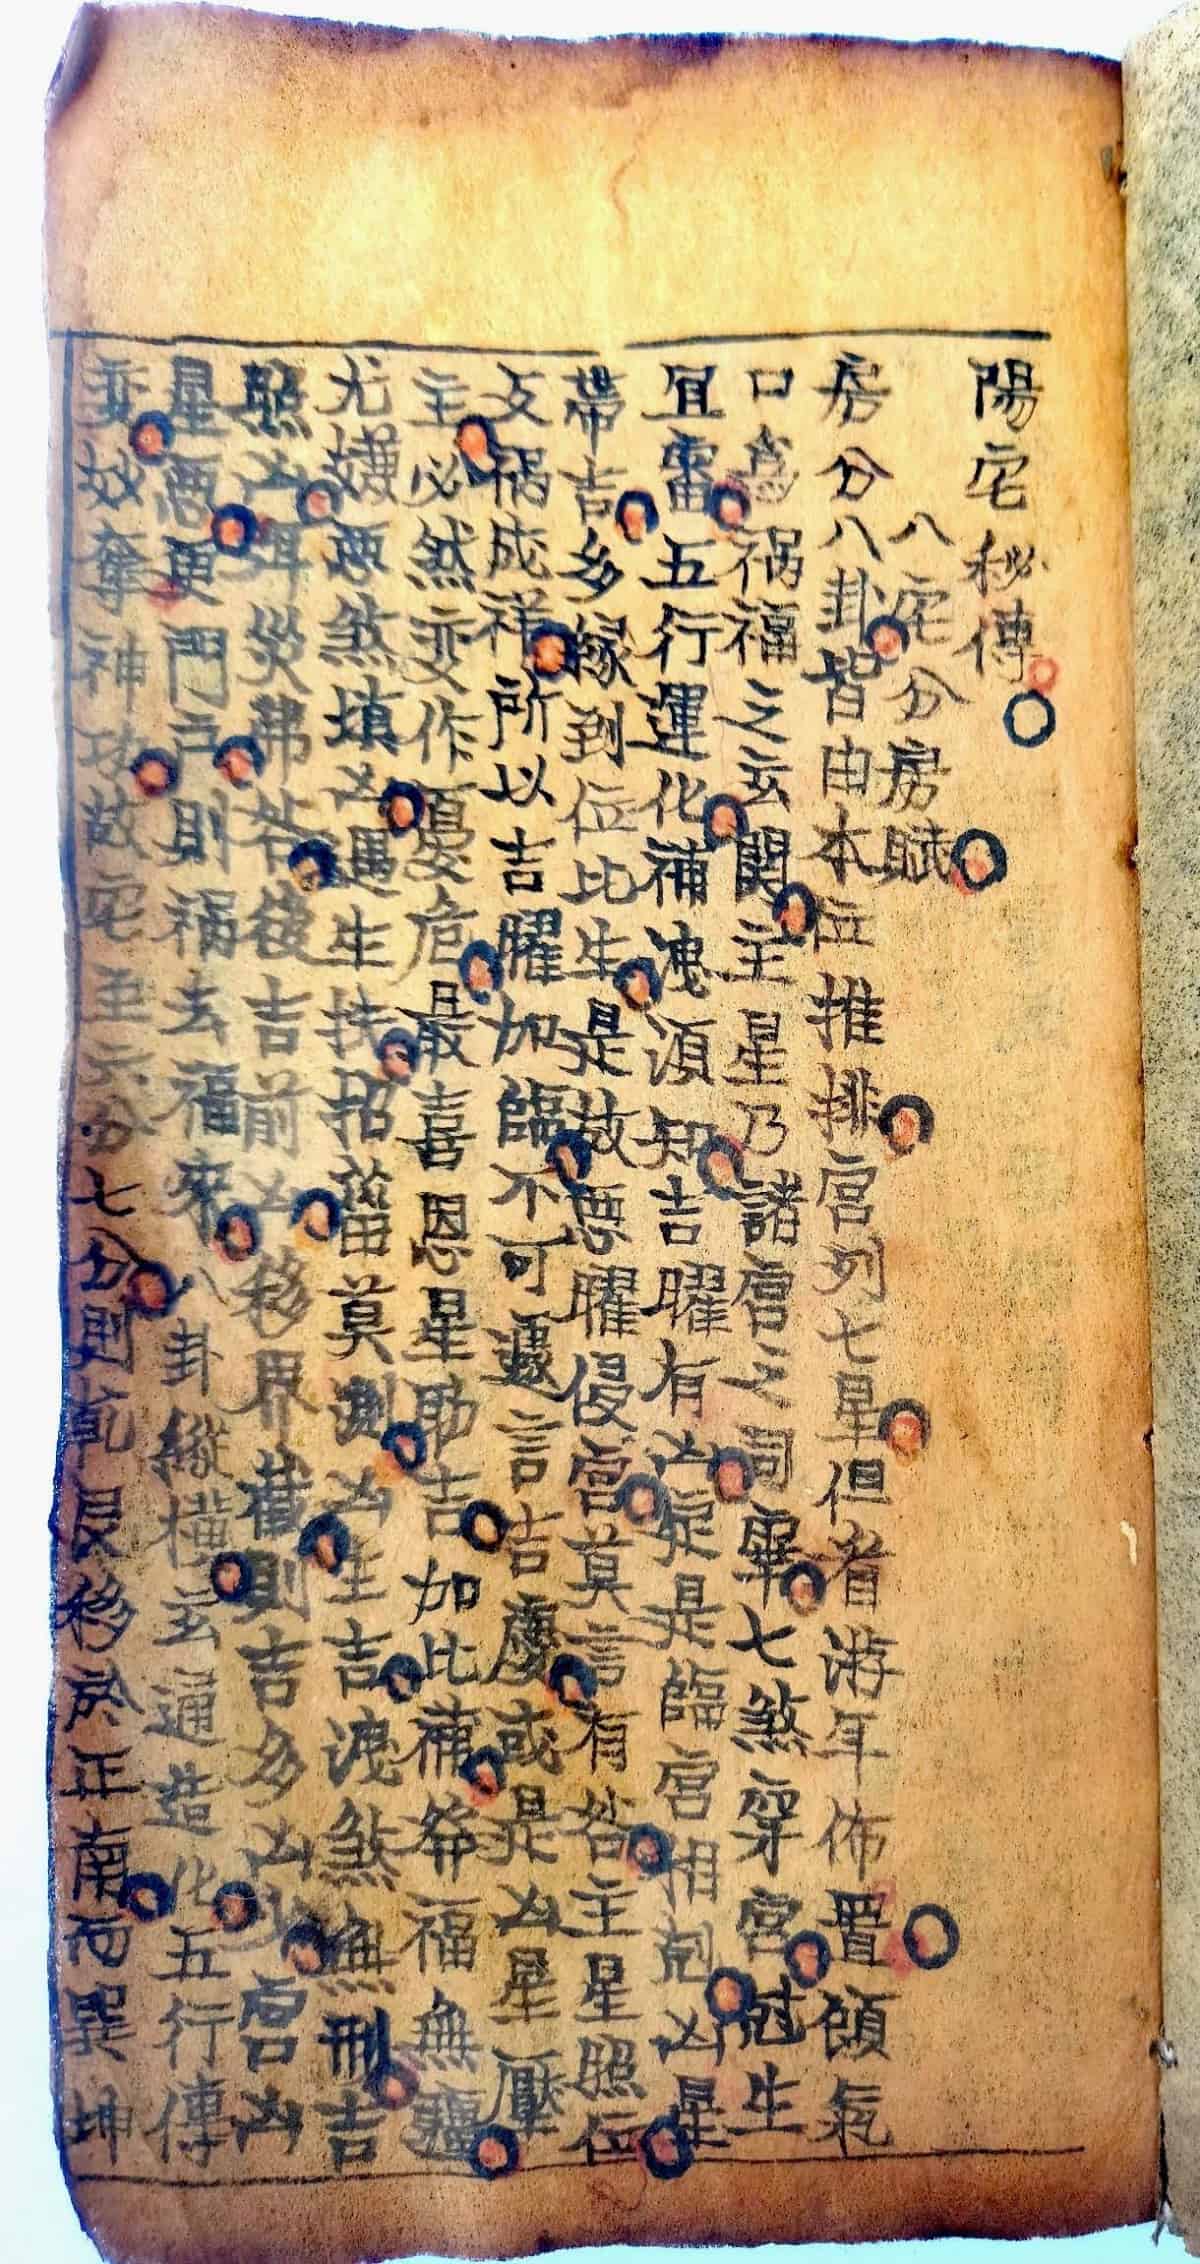 陽宅秘傳
八宅分房賦
房分八卦皆由本位推排宮列七星但看游年佈置傾氣
口為禍福之玄関主星乃諸宮之司畢七煞穿宮尅生
宜畱五行運化補洩須知吉曜有凶定是臨宮相剋凶星
帶吉多緣到位比生是故惡曜侵宮莫言有咎主星照位
反禍成祥所以吉曜加臨不可遽言吉慶或是凶星壓
主必然变作憂危最喜恩星助吉加比補爺福無疆
尤嫌惡煞填凶遇生扶招菑莫測凶生吉洩煞無刑吉
照凶弭災弗咎後吉前凶移界截則吉多凶少宮凶
星惡更門戸則禍去福來八卦縱橫玄通造化五行傳
变妙奪神功故宅至六分七分則乾艮移於正南而巽坤